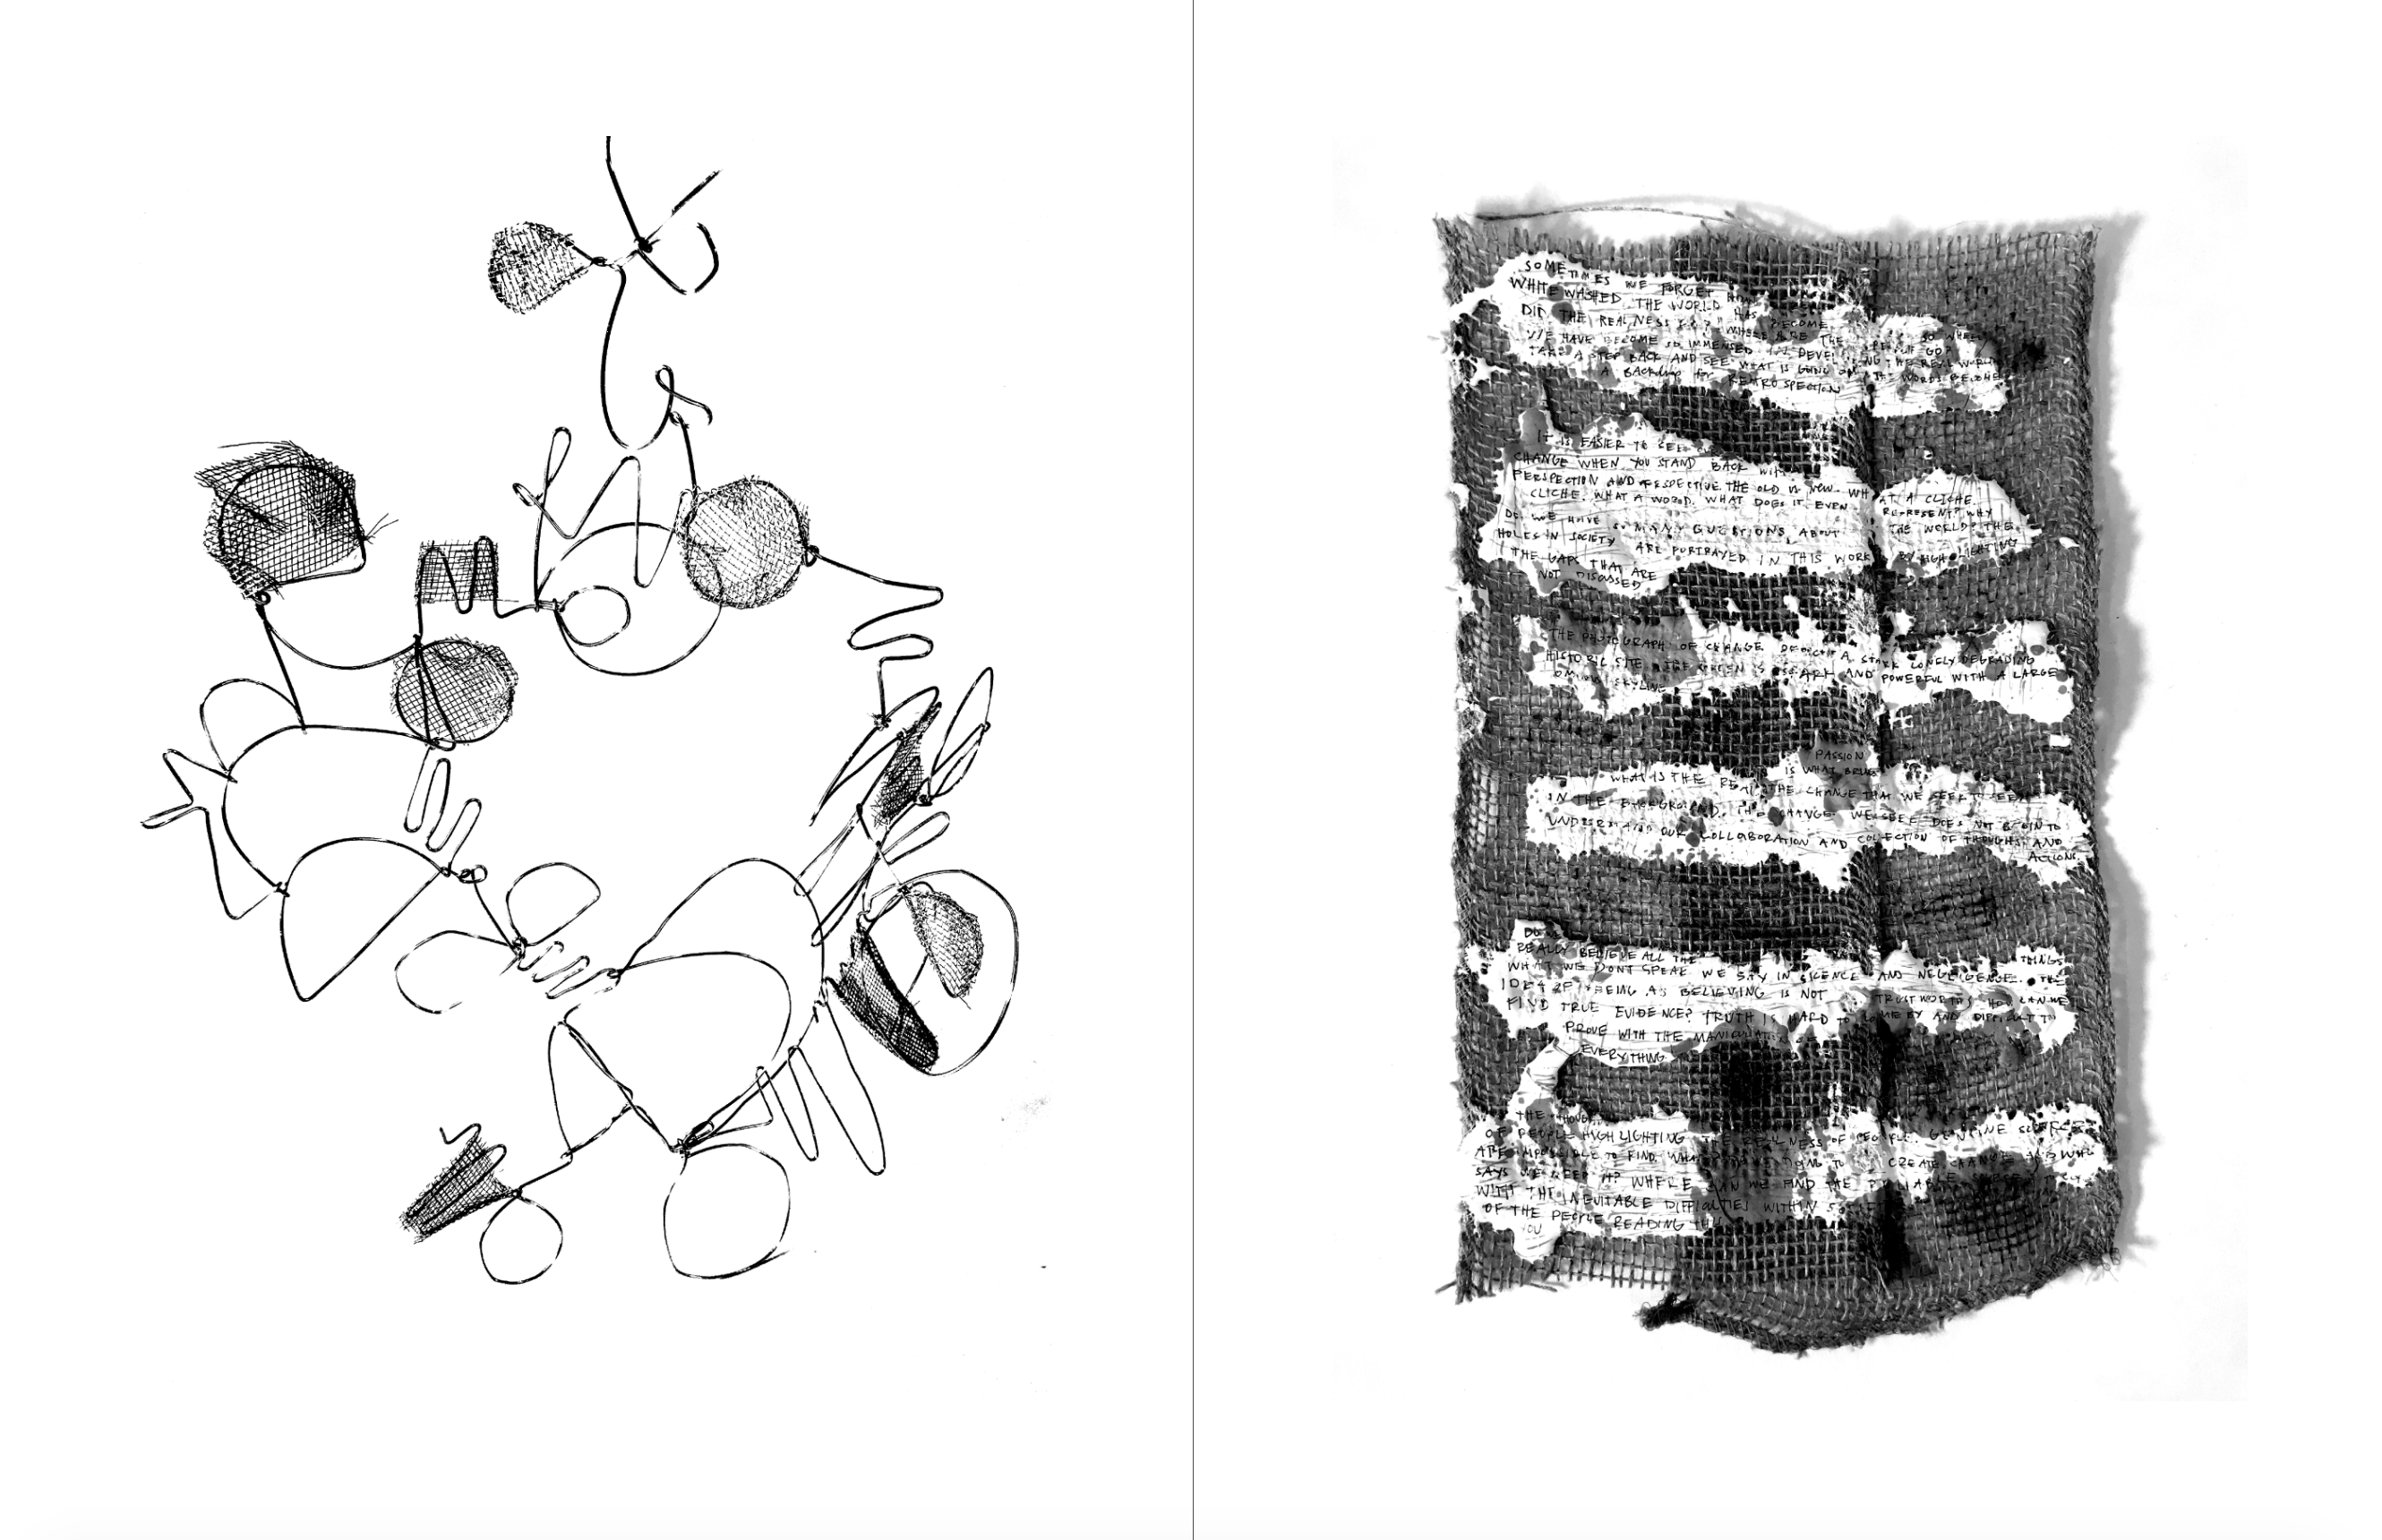 SOMETIMES WE FORGET HOW
WHITE WASHED THE WORLD HAS BECOME SO WHERE
DID THE REALNESS GO? WHERE ARE THE PEOPLE GO?
WE HAVE BECOME SO IMMENSED IN DEVELOPING THE REAL WORLD
TAKE A STEP BACK AND SEE WHAT IS GOING ON THE WORDS BECOME
A BACKDROP FOR RETROSPECTION
IT IS EASIER TO SEE
CHANGE WHEN YOU STAND BACK WITH
PERSPECTION AND RESPECTIVE THE OLD IS NEW. WHAT A CLICHE.
CLICHE. WHAT A WORD. WHAT DOES IT EVEN REPRESENT? WHY
DO WE HAVE SO MANY QUESTIONS ABOUT THE WORLD? THE
HOLES IN SOCIETY ARE PORTRAYED IN THIS WORK BY HIGHLIGHTING
THE GAPS THAT ARE
NOT DISCUSSED
THE PHOTOGRAPH OF CHANGE DEPICTS A STARK LONELY DEGRADING
HISTORIC SITE THE GREEN IS STARK AND POWERFUL WITH A LARGE
OMINOUS SKYLINE
PASSION
IS WHAT
WHAT IS THE REAL THE CHANGE THAT WE SEEK TO SEE
IN THE BACKGROUND. THE CHANGE WE SEE DOES NOT BEGIN TO
UNDERSTAND OUR COLLABORATION AND COLLECTION OF THOUGHTS AND
ACTIONS.
DO
REALLY BELIEVE ALL THE THINGS
WHAT WE DONT SPEAK WE SAY IN SILENCE AND NEGLIGENCE. THE
IDEA OF SEEING AS BELIEVING IS NOT TRUSTWORTHY HOW CAN WE
FIND TRUE EVIDENCE? TRUTH IS HARD TO COME BY AND DIFFICULT TO
PROVE WITH THE MANIPULATION OF
EVERYTHING
THE
OF PEOPLE HIGHLIGHTING THE REALNESS OF PEOPLE. GENUINE SOURCES
ARE IMPOSSIBLE TO FIND. WHAT WE DOING TO CREATE CHANGE AND WHO
SAYS WE NEED IT? WHERE CAN WE FIND THE RELIABLE
WITH THE INEVITABLE DIFFICULTIES WITHIN
OF THE PEOPLE READING THIS
YOU